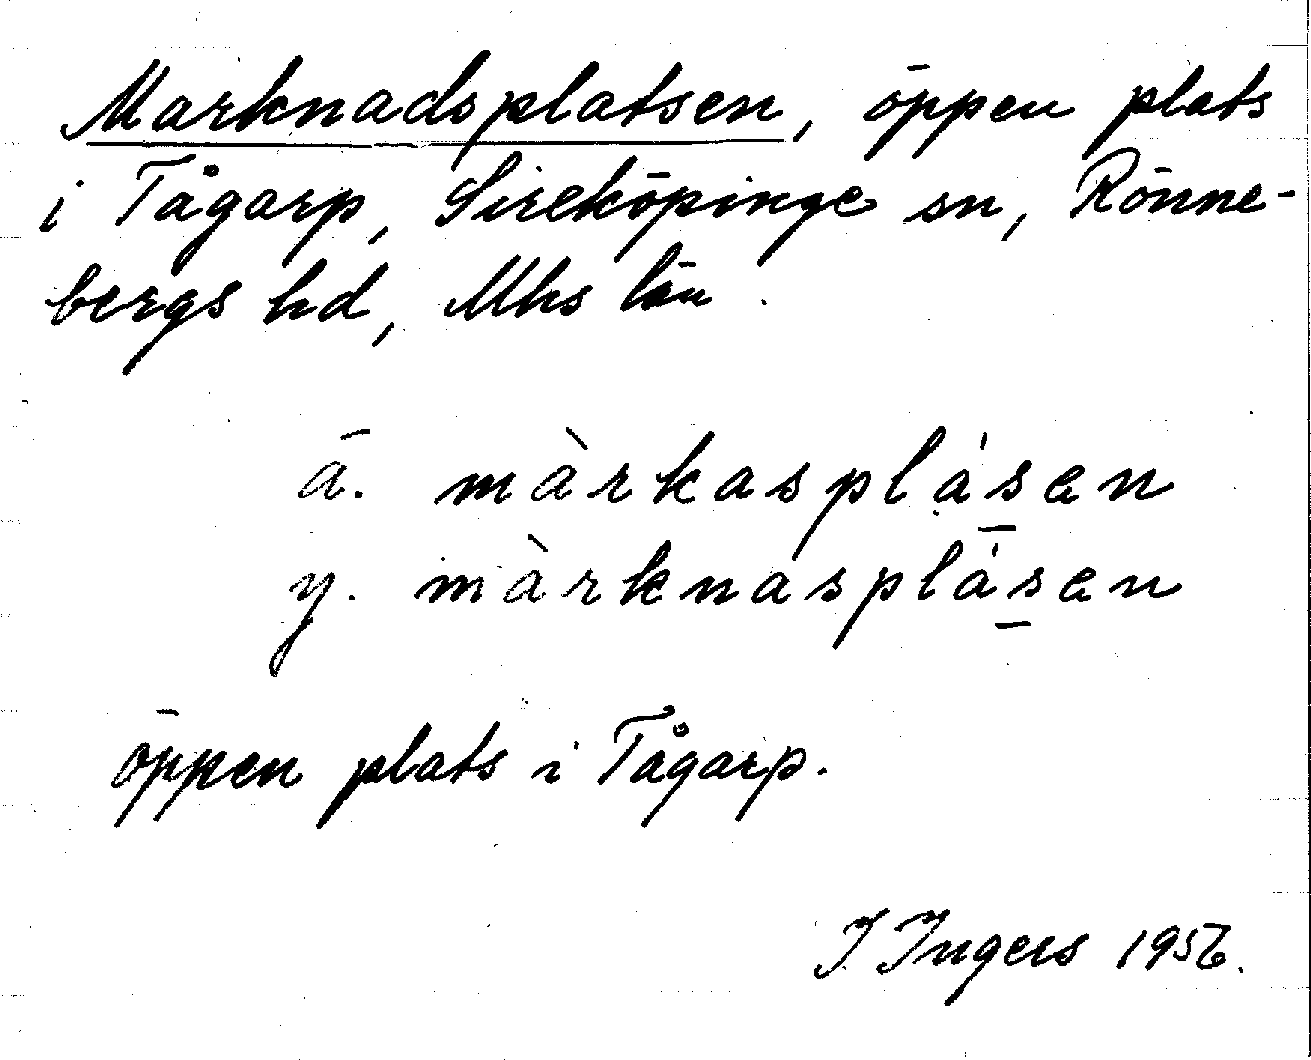 Marknadsplatsen, öppen plats
i Tågarp, Sireköpinge sn, Rönne-
bergs hd, Mhs län.
ä. màrkasplásen
y. màrknasplásen
öppen plats i Tågarp.
I. Ingers 1956.